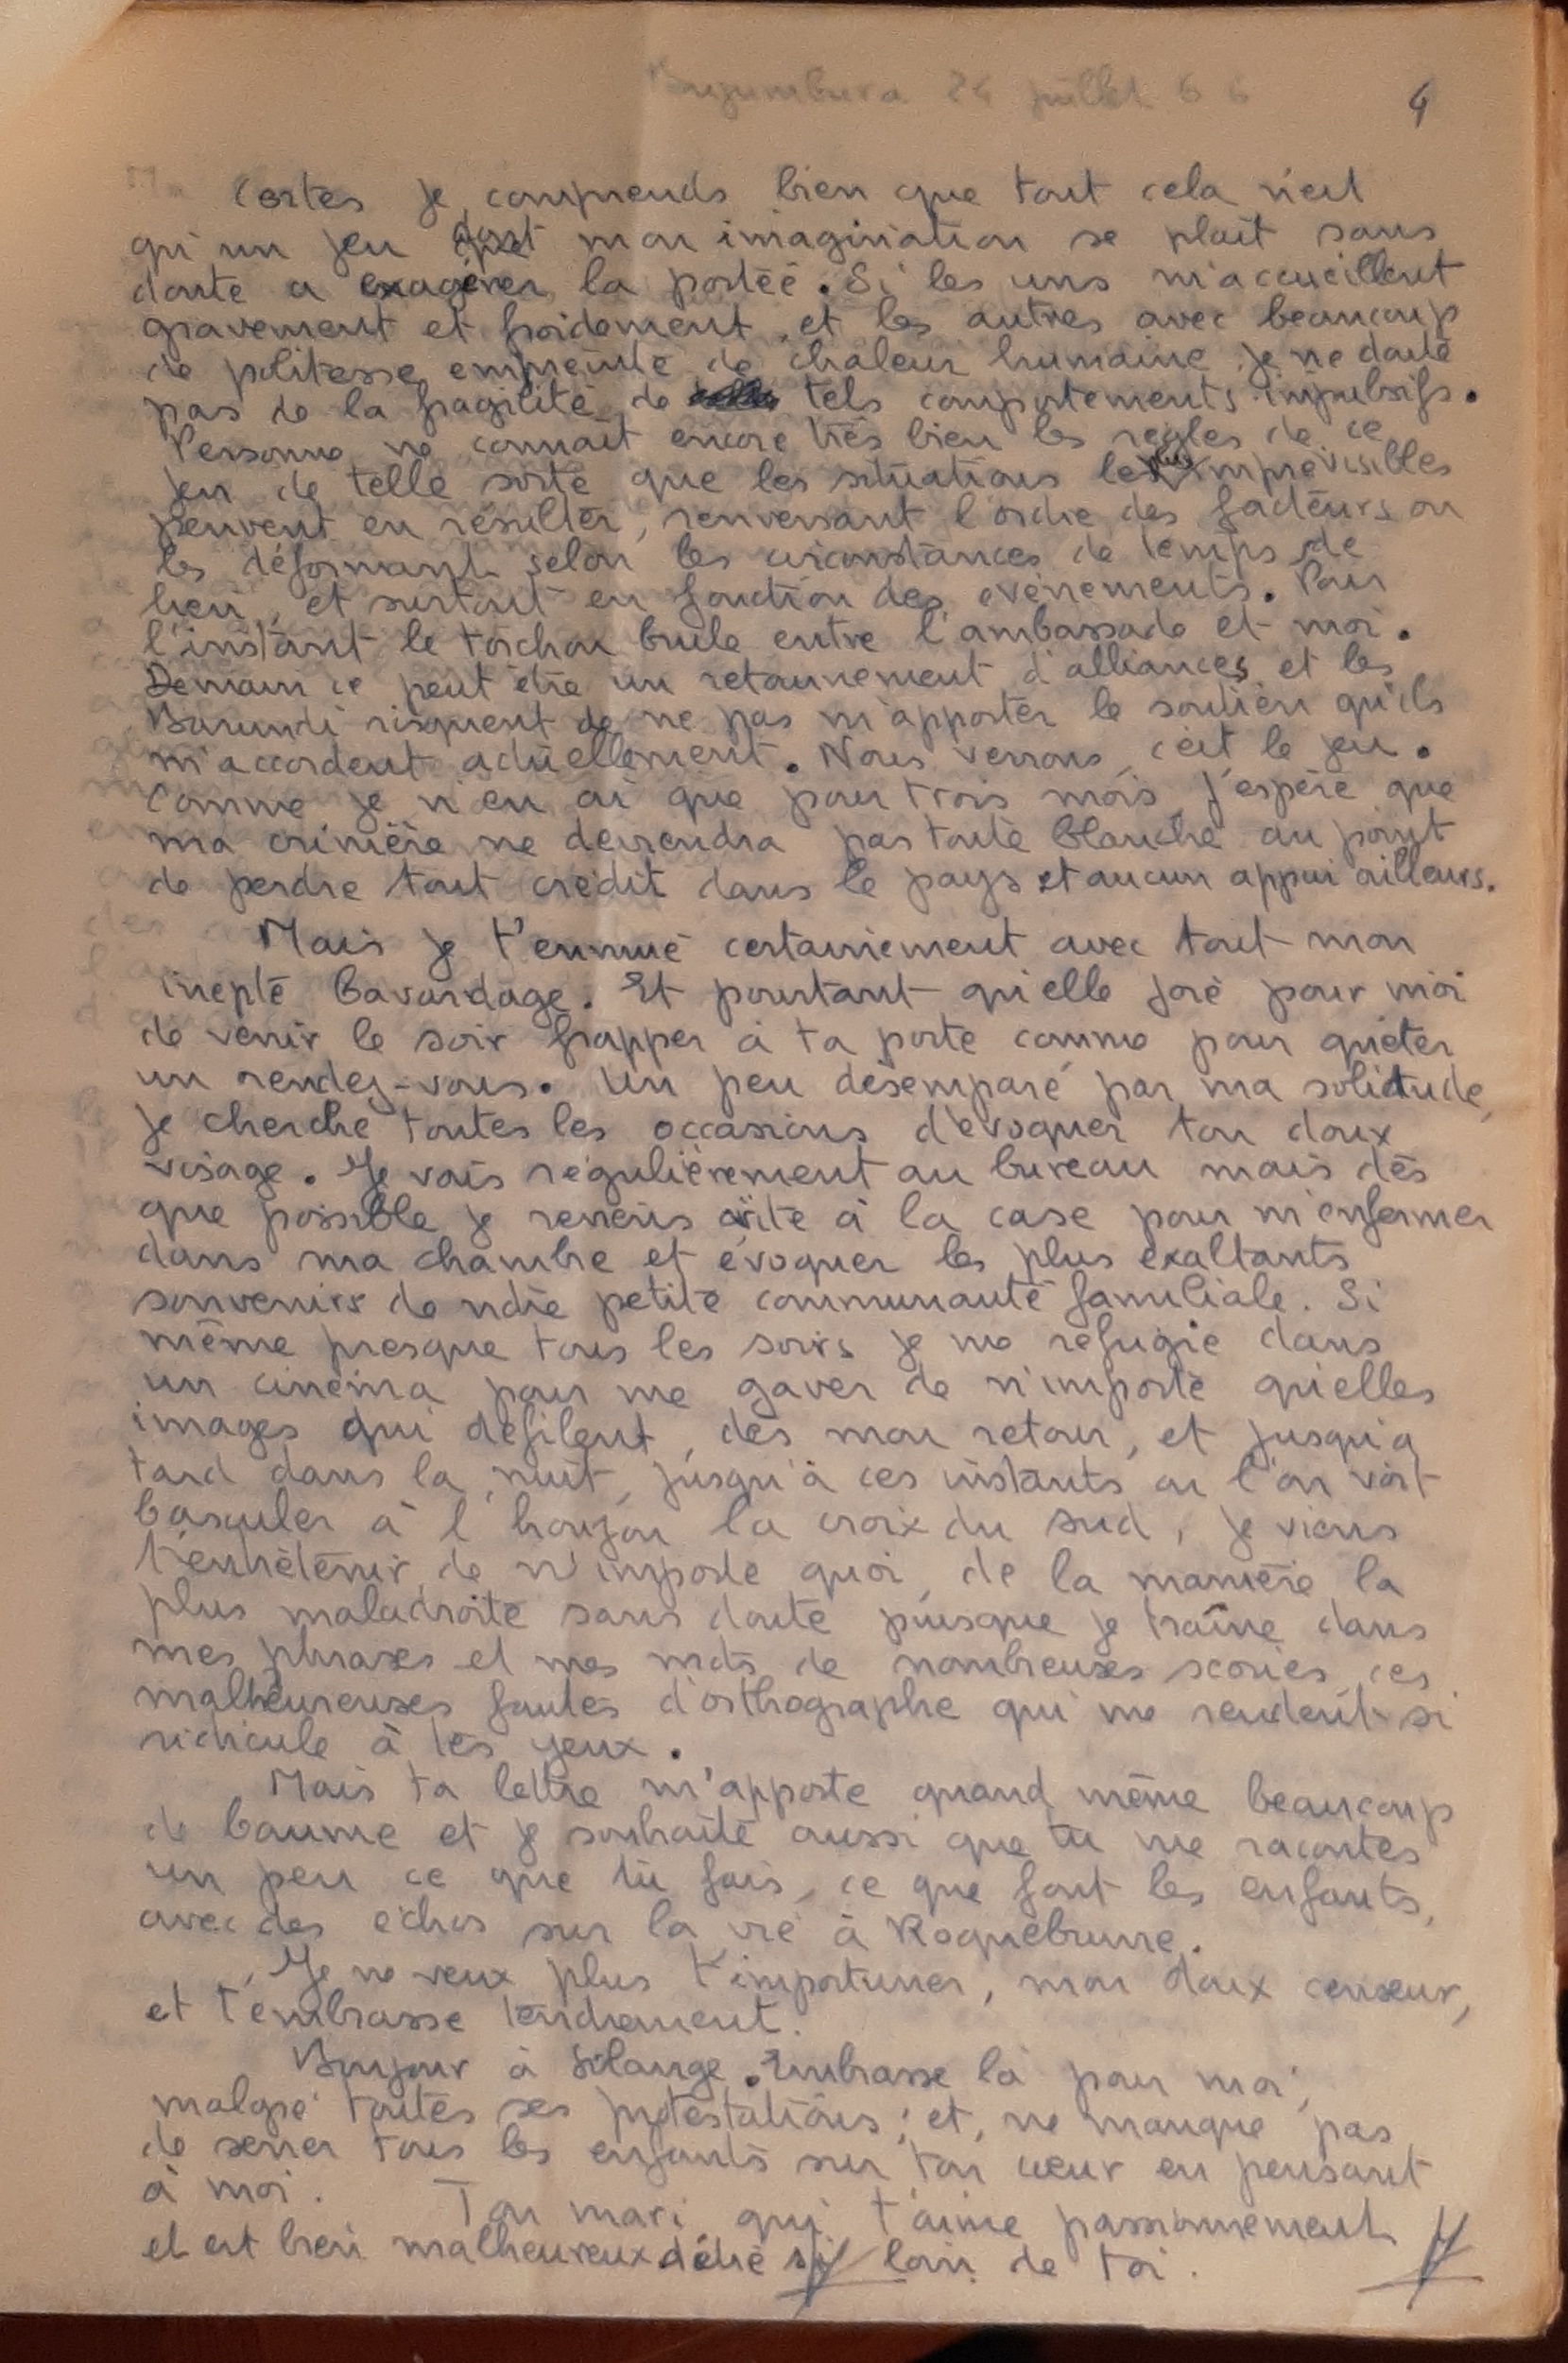 Bujumbura 24 juillet 66
4
Certes je comprends bien que tout cela n'est
qu'un jeu dont mon imagination se plaît sans
doute a exagérer la portée. Si les uns m'accueillent
gravement et froidement, et les autres avec beaucoup
de politesse empreinte de chaleur humaine je ne doute
pas de la fragilité de tels comportements impulsifs.
Personne ne connaît encore très bien les regles de ce
jeu de telle sorte que les situations les plus imprévisibles
peuvent en résulter, renversant l'ordre des facteurs ou
les déformant selon les circonstances de temps de
lieu, et surtout en fonction des evènements. Pour
l'instant le torchon brule entre l'ambassade et moi.
Demain ce peut être un retournement d'alliances et les
Barundi risquent de ne pas m'apporter le soutien qu'ils
m'accordent actuellement. Nous verrons, c'est le jeu.
Comme je n'en ai que pour trois mois, j'espère que
ma crinière ne deviendra pas toute blanche au point
de perdre tout credit dans le pays et aucun appui ailleurs.
Mais je t'ennuie certainement avec tout mon
inepte bavardage. Et pourtant qu'elle joie pour moi
de venir le soir frapper à ta porte comme pour quêter
un rendez-vous. Un peu désemparé par ma solitude,
je cherche toutes les occasions d'évoquer ton doux
visage. Je vais régulièrement au bureau mais dès
que possible je reviens vite à la case pour m'enfermer
dans ma chambre et évoquer les plus exaltants
souvenirs de notre petite communauté familiale. Si
même presque tous les soirs je me refugie dans
un cinéma pour me gaver de n'importe qu'elles
images qui defilent, dès mon retour, et jusqu'a
tard dans la nuit, jusqu'à ces instants ou l'on voit
basculer à l'horizon la croix du sud, je viens
t'entretenir de n'importe quoi, de la manière la
plus maladroite sans doute puisque je traîne dans
mes phrases et mes mots de nombreuses scories, ces
malheureuses fautes d'orthographe qui me rendent si
ridicule à tes yeux.
Mais ta lettre m'apporte quand même beaucoup
de baume et je souhaite aussi que tu me racontes
un peu ce que tu fais, ce que font les enfants,
avec des échos sur la vie à Roquebrune.
Je ne veux plus t'importuner, mon doux censeur,
et t'embrasse tendrement.
Bonjour à Solange. Embrasse la pour moi,
malgré toutes ses protestations; et, ne manque pas
de serrer tous les enfants sur ton cœur en pensant
à moi. Ton mari qui t'aime passionnement
et est bien malheureux d'être si loin de toi.